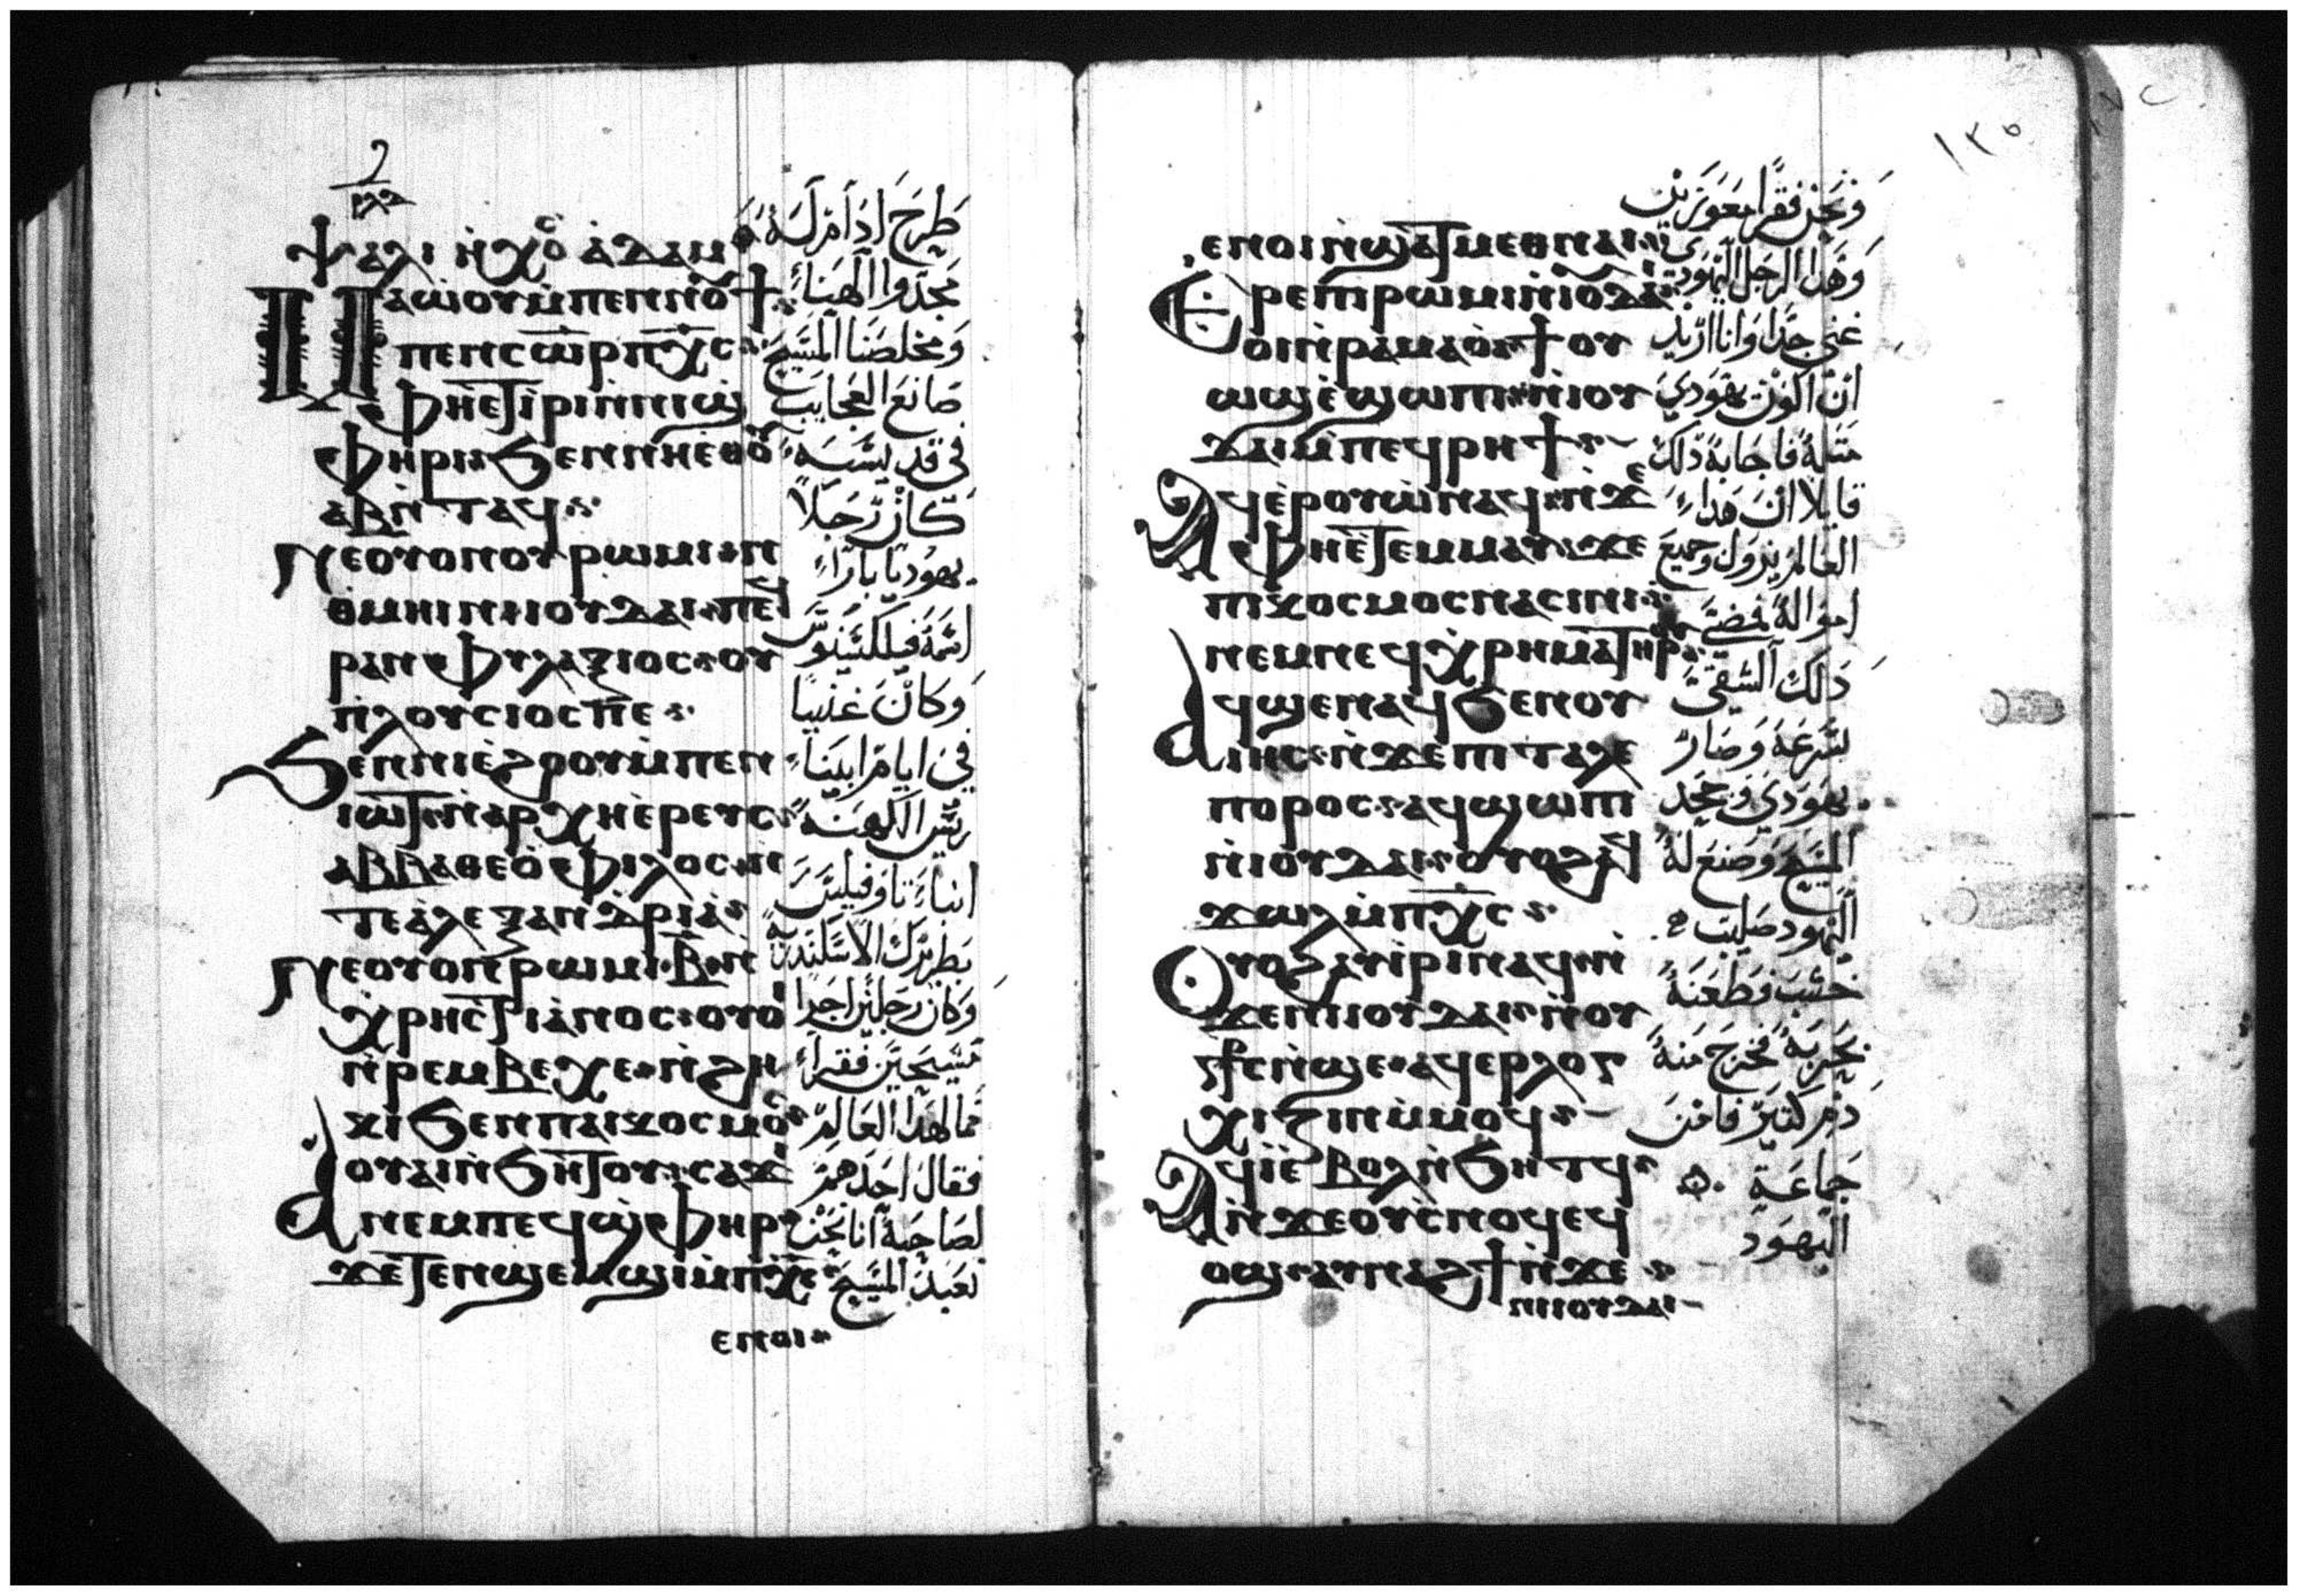 ⲯⲁⲗⲓ ⲛ̀ⲭⲟ ⲁⲇⲁⲙ
ⲙⲁⲱⲟⲩ ⲙ̀ⲡⲉⲛⲛⲟϯ
ⲡⲉⲛⲥⲱⲣ ⲡⲭⲥ
ⲫⲏⲉⲧⲓⲣⲓ ⲛ̀ⲛⲓϣ
ⲫⲏⲣⲓ ϧⲉⲛ ⲛⲏⲉⲑⲟ
ⲁⲃ ⲛ̀ⲧⲁϥ
ⲛⲉⲟⲩⲟⲛ ⲟⲩⲣⲱⲙⲓ ⲛ
ⲑⲙⲏⲓ ⲛⲓⲟⲩⲇⲁⲓ ⲡⲉϥ
ⲣⲁⲛ ⲫⲩⲗⲁⲝⲓⲟⲥ ⲟⲩ
ⲡⲗⲟⲩⲥⲓⲟⲥ ⲡⲉ
ϧⲉⲛ ⲛⲓⲉϩⲟⲟⲩ ⲙ̀ⲡⲉⲛ
ⲓⲱⲧ ⲛ̀ⲁⲣⲭⲏⲉⲣⲉⲩⲥ
ⲁⲃⲃⲁ ⲑⲉⲟⲫⲓⲗⲟⲥ ⲛ̀
ⲧⲉ ⲁⲗⲉⲝⲁⲛⲇⲣⲓⲁ
ⲛⲉⲟⲩⲟⲛ ⲣⲱⲙⲓ ⲃ ⲛ
ⲭⲣⲏⲥⲧⲓⲁⲛⲟⲥ ⲟⲩⲟ
ⲛ̀ⲣⲉⲙⲃⲉⲭⲉ ⲛ̀ϩⲏ
ⲕⲓ ϧⲉⲛ ⲡⲁⲓⲕⲟⲥⲙⲟ
ⲁⲟⲩⲁⲓ ⲛ̀ϧⲏⲧⲟⲩ ⲥⲁϫⲓ
ⲛⲉⲙ ⲡⲉϥϣⲫⲏⲣ
ϫⲉ ⲧⲉⲛϣⲉⲙϣⲓ ⲙ̀ⲡⲭⲥ
ⲉⲛⲟⲓ
طرح ادام له
مجدوا الهنا
ومخلصنا المسيح
صانع العجايب
في قديسيه
كان رجلا
يهوديا بارا
اسمه فيلكسينوس
وكان غنيا
في ايام ابينا
ريس الكهنة
انبا تاوفيلس
بطريرك الاسكندرية
وكان رجلين اجرا
مسيحين فقرا
فقال احدهم
لصاحبه انا نحن
نعبد المسيح
١٣٥
ⲉⲛⲟⲓ ⲛ̀ϣⲁⲧⲙⲉⲑⲛⲁⲓ
ⲉⲣⲉ ⲡⲓⲣⲱⲙⲓ ⲛⲓⲟⲩⲇⲁⲓ
ⲟⲓ ⲛ̀ⲣⲁⲙⲁⲟ ϯⲟⲩ
ⲱϣ ⲉ̀ϣⲱⲡⲓ ⲛ̀ⲓⲟⲩ
ⲇⲁⲓ ⲙ̀ⲡⲉϥⲣⲏϯ
ⲁϥⲉⲣⲟⲩⲱ ⲛⲁϥ ⲛ̀ϫⲉ
ⲫⲏⲉⲧⲉⲙⲙⲁⲩ ϫⲉ
ⲡⲓⲕⲟⲥⲙⲟⲥ ⲛⲁⲥⲓⲛⲓ
ⲛⲉⲙ ⲛⲉϥⲭⲣⲏⲙⲁ ⲧⲏⲣ
ⲁϥϣⲉⲛⲁϥ ϧⲉⲛ ⲟⲩ
ⲓⲏⲥ ⲛ̀ϫⲉ ⲡⲓⲧⲁⲗⲉ
ⲡⲟⲣⲟⲥ ⲁϥϣⲱⲡⲓ
ⲛ̀ⲓⲟⲩⲇⲁⲓ ⲟⲩⲟϩ ⲁϥ
ϫⲱⲗ ⲙ̀ⲡⲭⲥ
ⲟⲩⲟϩ ⲁⲩⲓⲣⲓ ⲛⲁϥ ⲛ̀
ϫⲉ ⲛⲓⲓⲟⲩⲇⲁⲓ ⲛ̀ⲟⲩ
ⲥϯⲥ ⲛ̀ϣⲉ ⲁϥⲉⲣⲗⲟⲅ
ⲭⲓⲍⲓⲛ ⲙ̀ⲙⲟϥ
ⲁϥⲓ̀ ⲉⲃⲟⲗ ⲛ̀ϧⲏⲧϥ
ⲛ̀ϫⲉ ⲟⲩⲥⲛⲟϥ ⲉϥ
ⲟϣ ⲁⲩⲛⲁϩϯ ⲛ̀ϫⲉ
ⲛⲓⲓⲟⲩⲇⲁⲓ
ونحن فقرا معوزين
وهذا الرجل اليهودي
غني جدا وانا اريد
ان اكون يهودي
مثله فاجابه ذلك
قايلا ان هذا
العالم يزول وجميع
امواله فمضى
ذلك الشقي
بسرعة وصار
يهودي وجحد
المسيح وصنع له
اليهود صليب
خشب وطعنه
بحربة فخرج منه
دم كتير فامن
جماعة
اليهود